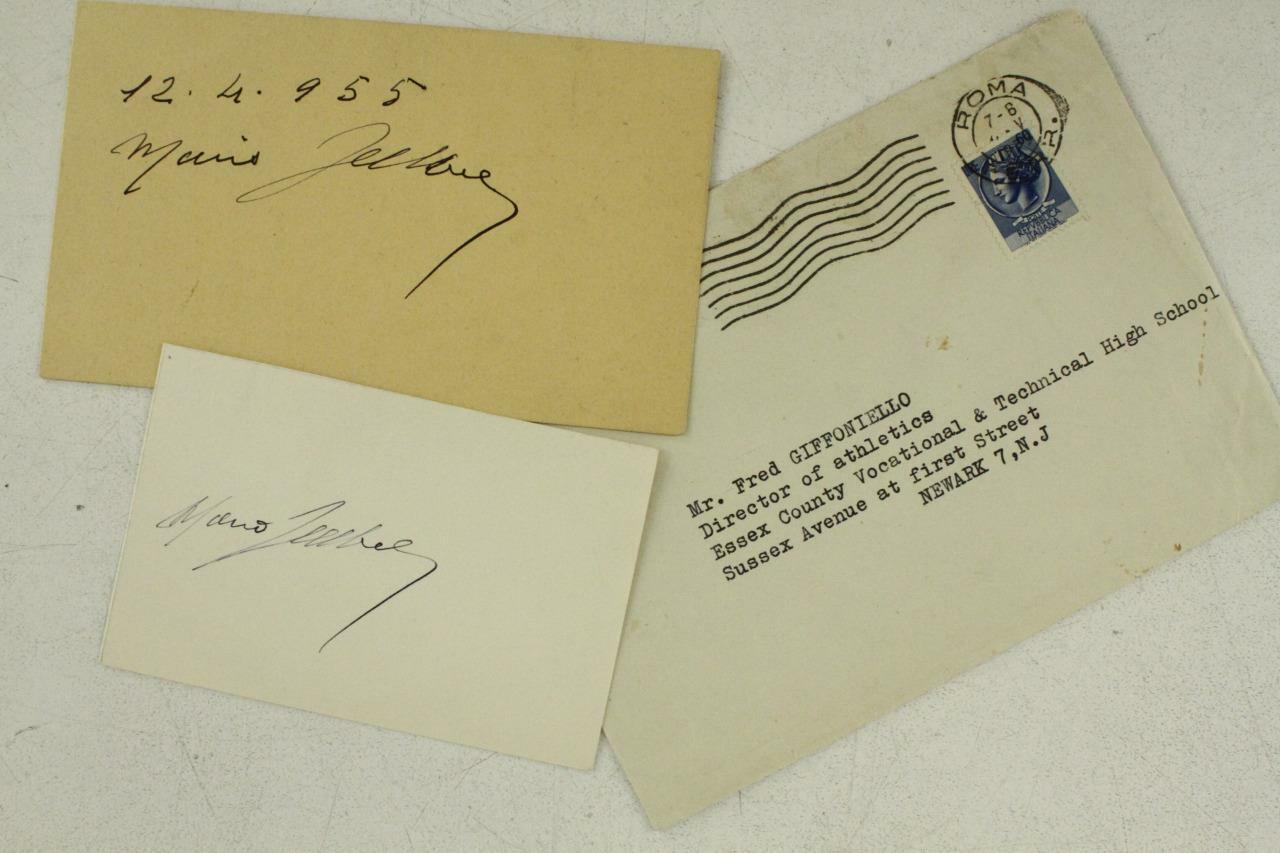 12. 4. 955
Mario
Mario
ROMA
7-8
POSTE
REPVBBLICA
ITALIANA
Mr. Fred GIFFONIELLO
Director of athletics
Essex County Vocational & Technical High School
Sussex Avenue at first Street
NEWARK 7,N.J